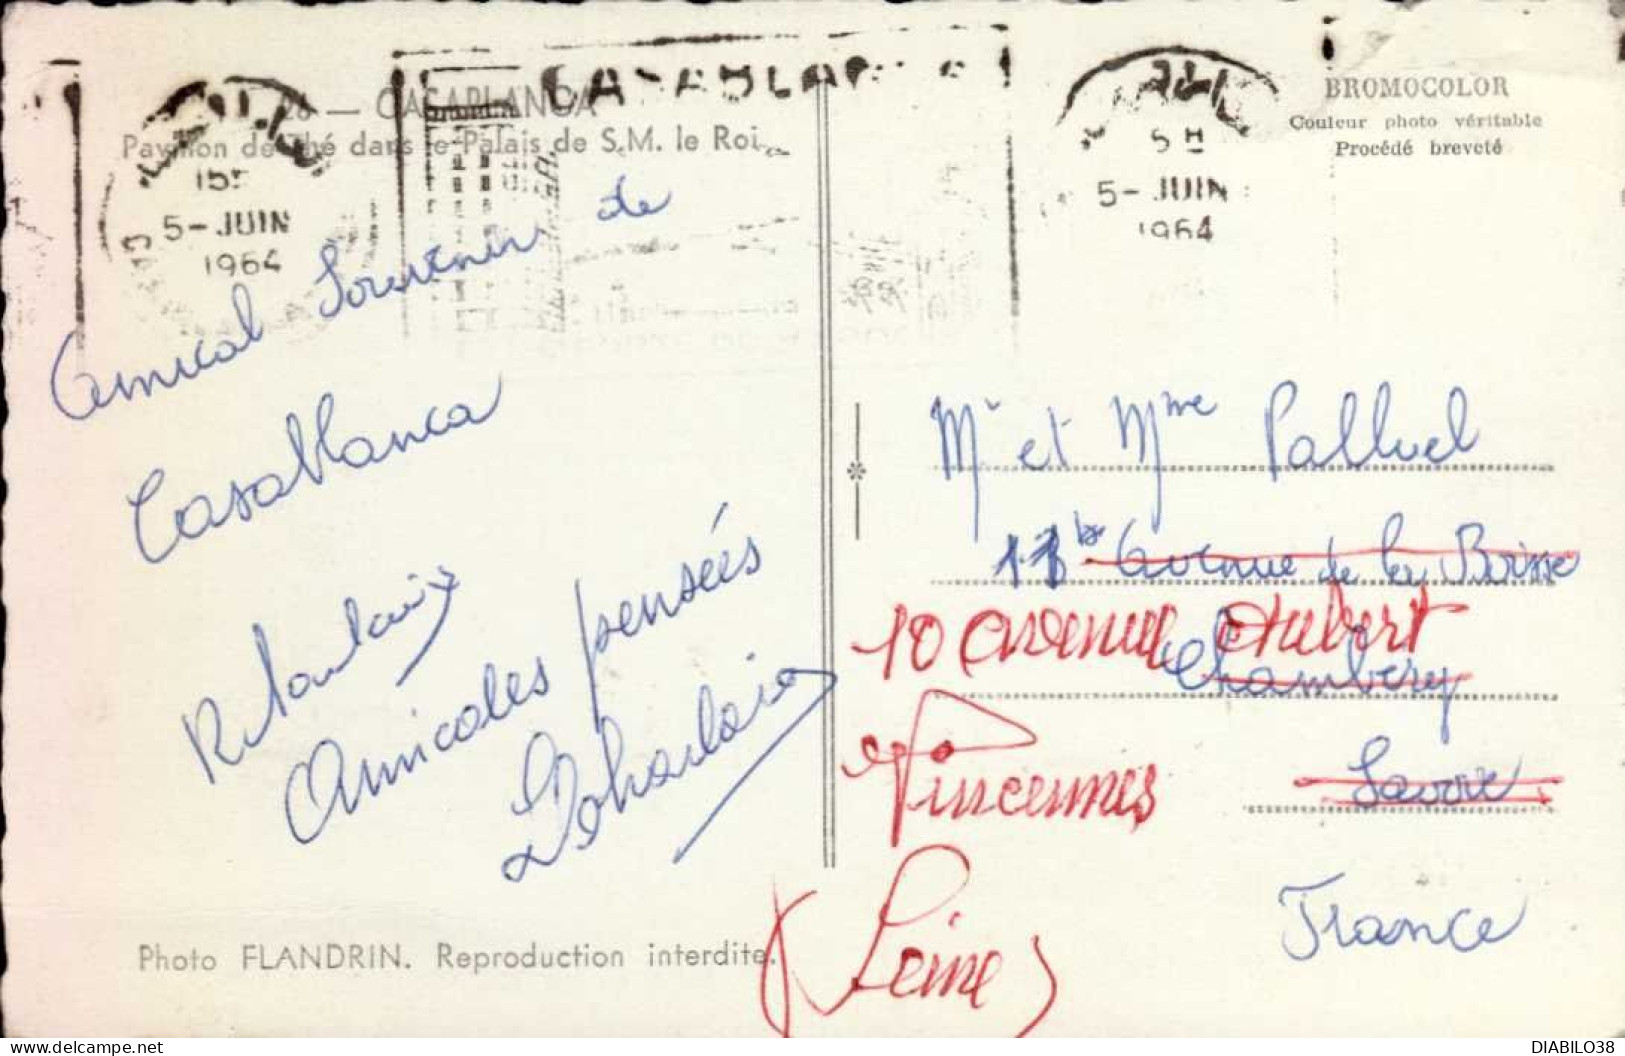 26 — CASABLANCA
Pavillon de Thé dans le Palais de S.M. le Roi.
CASABLANCA
5 - JUIN
1964
5 - JUIN
1964
BROMOCOLOR
Couleur photo véritable
Procédé breveté
Amical Souvenir de
Casablanca
Amicales pensées
Mr et Mme Palluel
Avenue de la Boisse
10 Avenue Aubert
Chambéry
Vincennes
Savoie
(Seine)
France
Photo FLANDRIN. Reproduction interdite.
DIABILO38